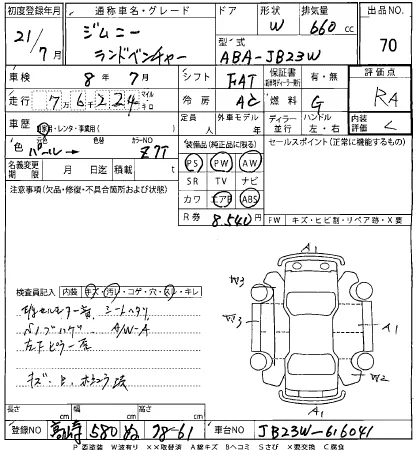 初度登録年月 通称車名・グレード ドア 形状 排気量 出品No.
21/7月 ジムニー ランドベンチャー W 660 cc 70
型式
ABA-JB23W
車検 8年 7月 シフト FAT 保証書 有・無 評価点
走行 7万6千224 マイル キロ 冷房 AC 燃料 G RA
車歴 自家用・レンタ・事業用( ) 定員 人 外車モデル 年 ディラー 並行 ハンドル 左・右 内装評価 C
色 パール 色替 カラーNO Z7T
装備品(純正品に限る) セールスポイント(正常に機能するもの)
名義変更期限 月 日迄 積載 t
PS PW AW
SR TV ナビ
注意事項(欠品・修復・不具合箇所および状態)
カワ エアB ABS
R券 8,540円
FW キズ・ヒビ割・リペア跡・X要
検査員記入 内装 キズ・汚レ・コゲ・穴・スレ・キレ
シートヘタリ
A/W-A
A1
W3
W3
A1
W2
A1
長さ cm 幅 cm 高さ cm
登録NO 580 ぬ 78-61 車台NO JB23W-616041
P 要塗装 W 波有り ××取替済 A 線キズ B ヘコミ S さび ×要交換 C 腐食